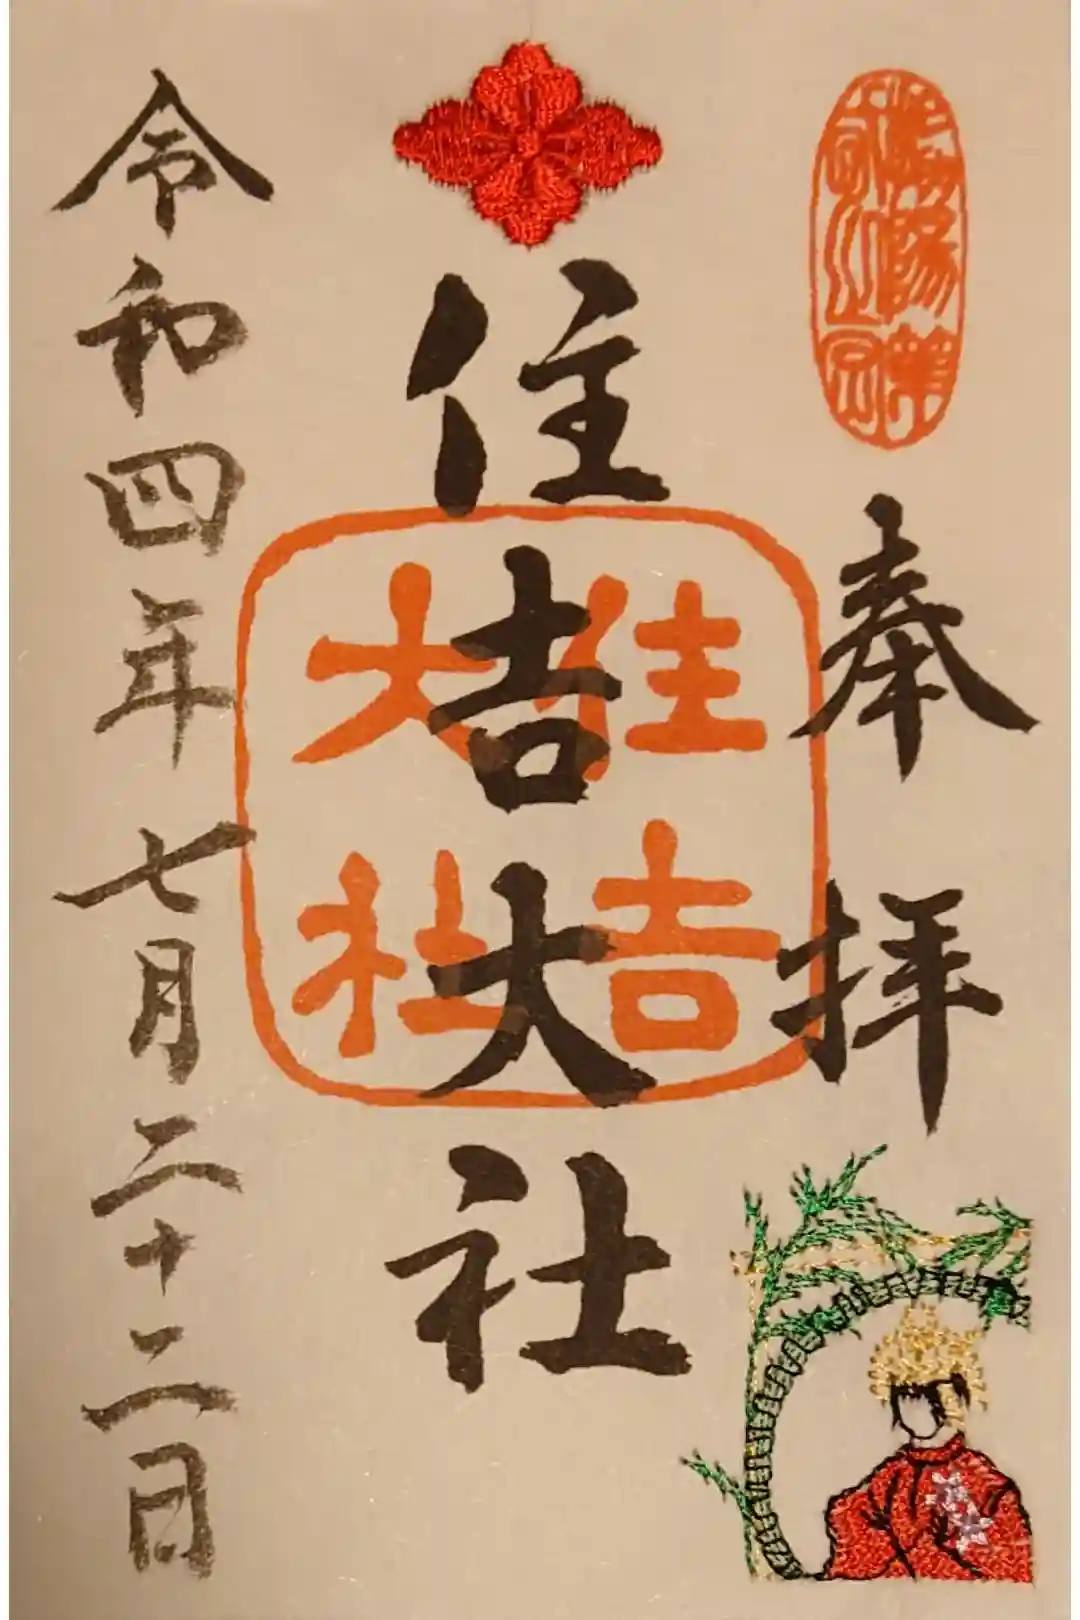 奉拝
住吉大社
住吉大社
令和四年七月二十二日